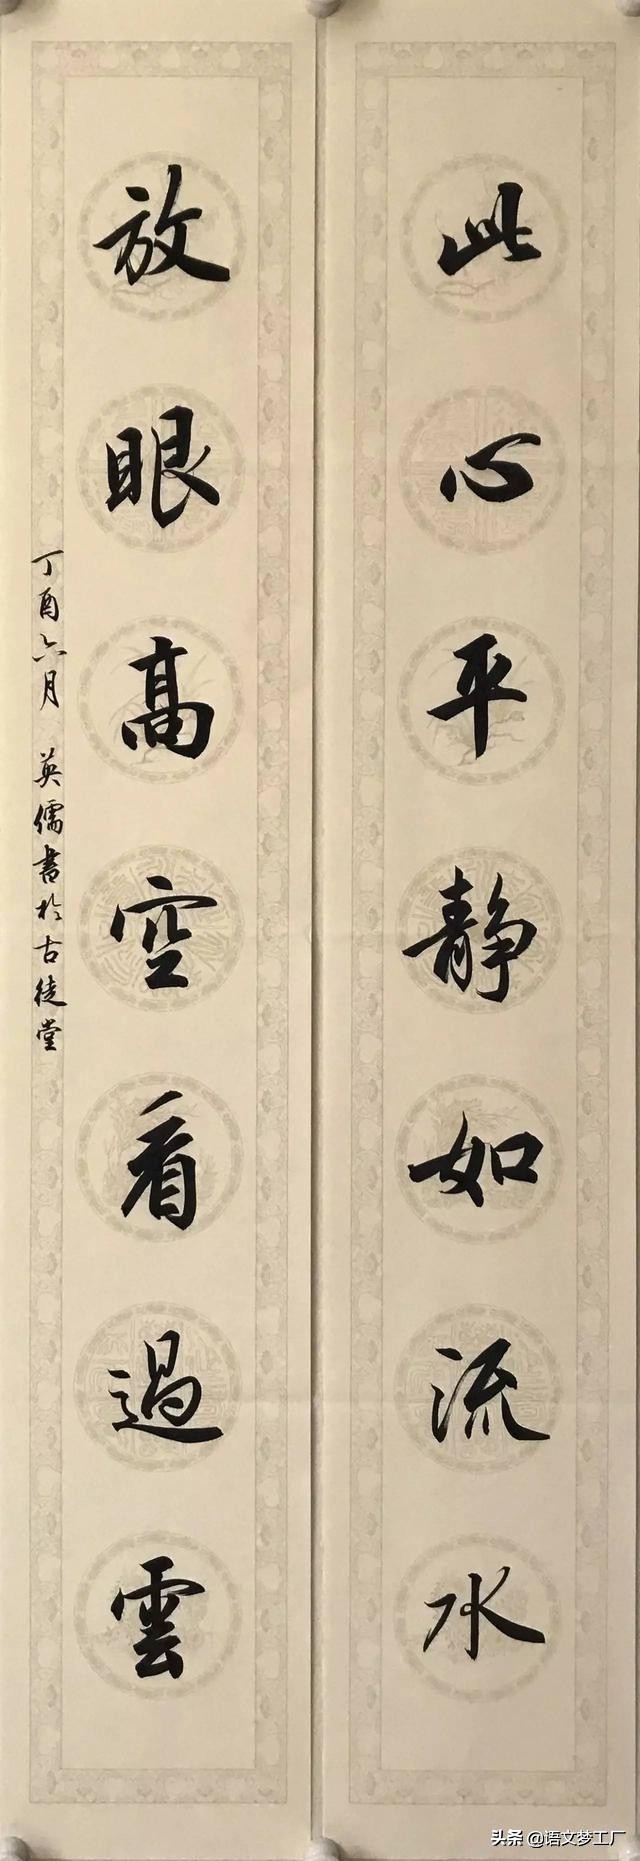 此心平静如流水
放眼高空看過雲
丁酉六月 英儒書於古徒堂
头条 @语文梦工厂